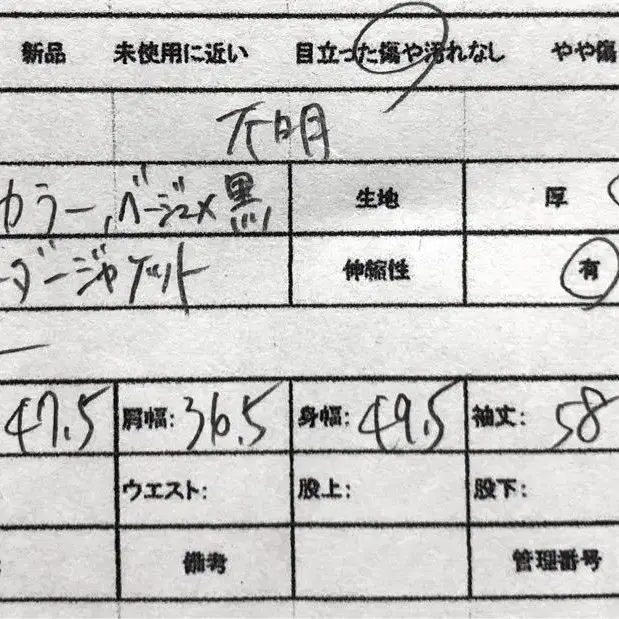 新品 未使用に近い 目立った傷や汚れなし やや傷
不明
カラー、ベージュ×黒 生地 厚
ーダージャケット 伸縮性 有
47.5 肩幅: 36.5 身幅: 49.5 袖丈: 58
ウエスト: 股上: 股下:
備考 管理番号